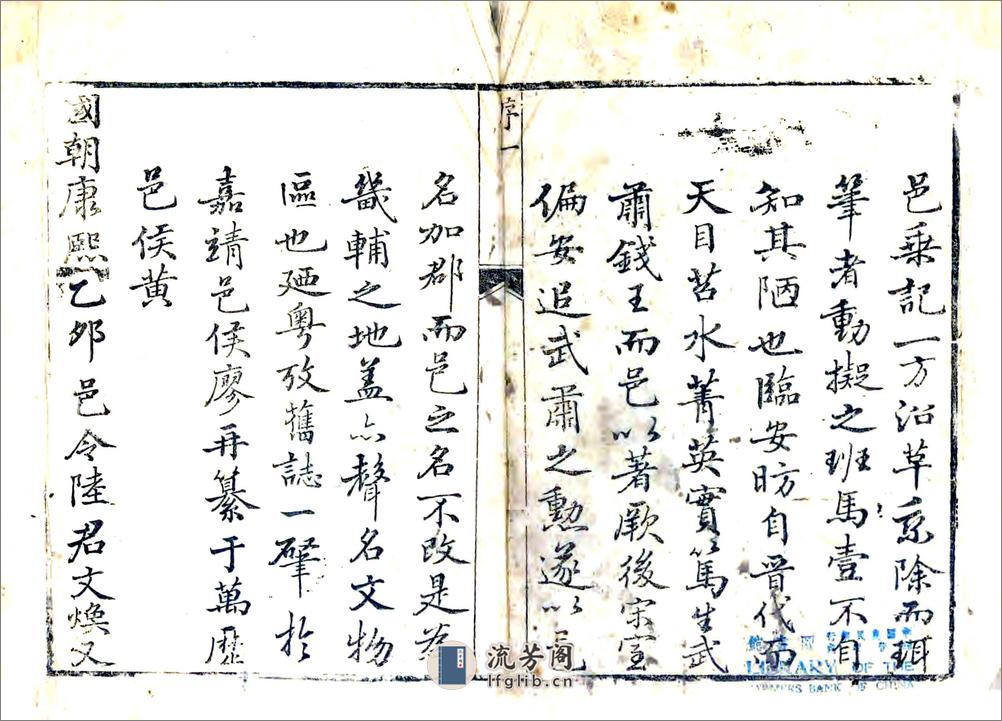 邑乗記一方沿革除而珥
筆者動擬之班馬壹不自
知其陋也臨安昉自晋代而
天目苕水菁英實篤生武
肅錢王而邑以著厥後宋室
偏安追武肅之勲遂以
序一
名加郡而邑之名不改是為
畿輔之地葢亦聲名文物
區也廼粤攷舊誌一肇於
嘉靖邑侯廖再纂于萬歷
邑侯黄
國朝康熙乙夘邑令陸君文煥又
LIBRARY OF THE
FARMERS BANK OF CHINA
流芳阁
lfglib.cn